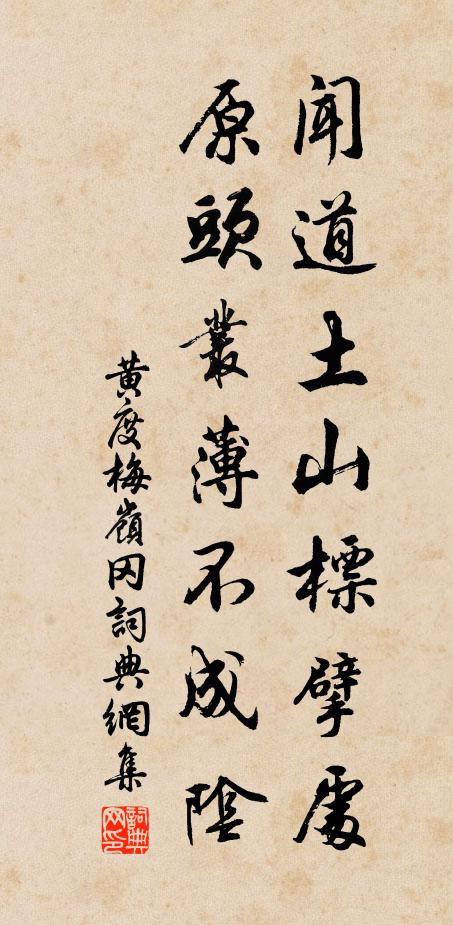 聞道土山標擘處
原頭叢薄不成陰
黃度梅嶺岡詞典網集
詞典網印